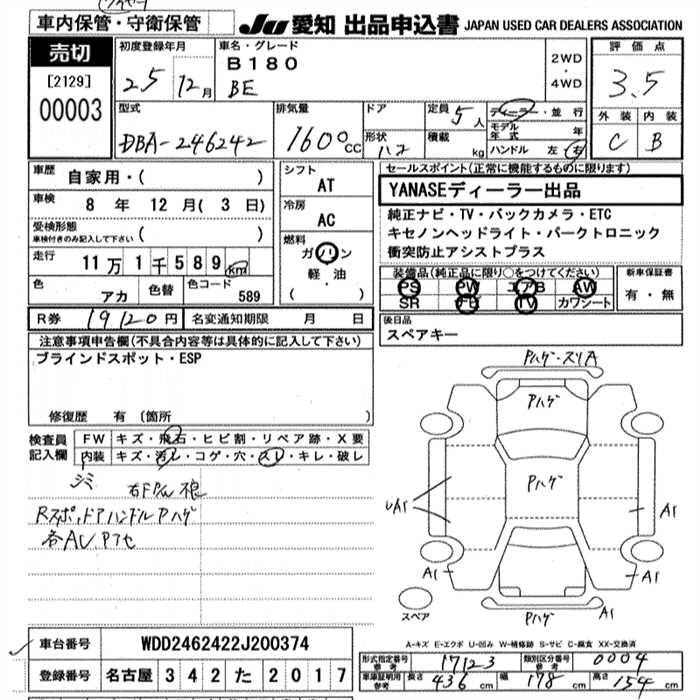 車内保管・守衛保管
JU 愛知 出品申込書 JAPAN USED CAR DEALERS ASSOCIATION
売切
[2129]
00003
初度登録年月
25 12月
車名・グレード
B180
BE
2WD
・
4WD
評価点
3.5
外装 内装
C B
型式
DBA-246242
排気量
1600cc
ドア
形状
定員 5人
積載 kg
ディーラー・並行
モデル年式 年
ハンドル 左 右
車歴 自家用・( )
車検 8年 12月( 3日)
受検形態
車検付きのみ記入して下さい ( )
走行 11万1千589km
色 アカ 色替 色コード 589
シフト
AT
冷房
AC
燃料
ガソリン
軽・油
( )
セールスポイント(正常に機能するものに限ります)
YANASEディーラー出品
純正ナビ・TV・バックカメラ・ETC
キセノンヘッドライト・パークトロニック
衝突防止アシストプラス
装備品(純正品に限り○をつけてください)
PS PW エアB AW
SR ナビ TV カワシート
新車保証書
有・無
R券 19120円 名変通知期限 月 日
後日品
スペアキー
注意事項申告欄(不具合内容等は具体的に記入して下さい)
ブラインドスポット・ESP
修復歴 有 (箇所
検査員記入欄
FW キズ・飛石・ヒビ割・リペア跡・X要
内装 キズ・汚レ・コゲ・穴・スレ・キレ・破レ
シミ
Rスポ,ドアハンドルPハゲ
各AU.Pアセ
Pハゲ・スリA
Pハゲ
Pハゲ
UA1
A1
A1
A1
Pハゲ A1
スペア
A-キズ E-エクボ U-凹み W-補修跡 S-サビ C-腐食 XX-交換済
車台番号 WDD2462422J200374
登録番号 名古屋 342 た 2017
形式指定番号 参考 17123 類別区分番号 参考 0004
車庫証明用 参考 長さ 436cm 幅 178cm 高さ 154cm